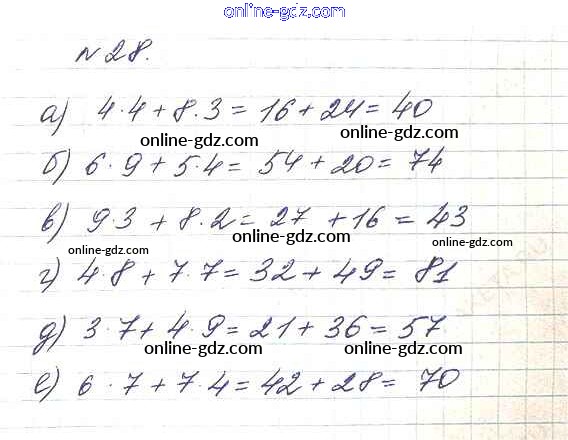 online-gdz.com
№28.
а) 4·4+8·3=16+24=40
online-gdz.com online-gdz.com
б) 6·9+5·4=54+20=74
в) 9·3+8·2=27+16=43
online-gdz.com online-gdz.com online-gdz.com
г) 4·8+7·7=32+49=81
д) 3·7+4·9=21+36=57
online-gdz.com online-gdz.com
е) 6·7+7·4=42+28=70